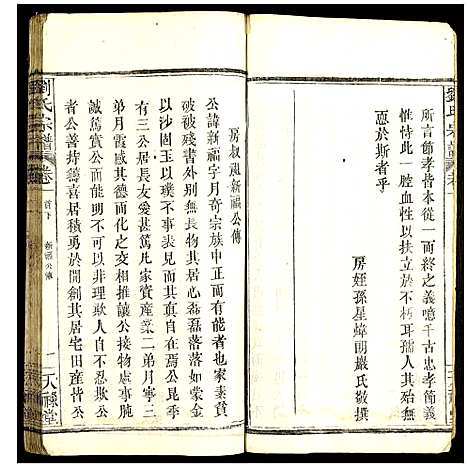 所言節孝皆本從一而終之義噫千古忠孝節義
惟恃此一腔血性以扶立於不朽耳孺人其有
慝於斯者乎
房姪孫星煒朗嚴氏敬撰
劉氏宗譜
卷一
房叔祖新福公傳
公諱新福字月奇宗族中正而有能者也家素貧
破被殘書外別無長物其居心磊磊落落如蒙金
以沙固玉以璞不事表見而其天真燦然公昆季
有三公居長友愛甚篤凡家貲産業二弟月寧三
弟月霞感其德而化之相推讓公接物處事腕
誠篤實公而無私不可以非理欺人自不忍欺公
者公善持籌喜居積勇於開創其居宅田産皆公
劉氏宗譜
卷
首下
新福公傳
一
天祿堂